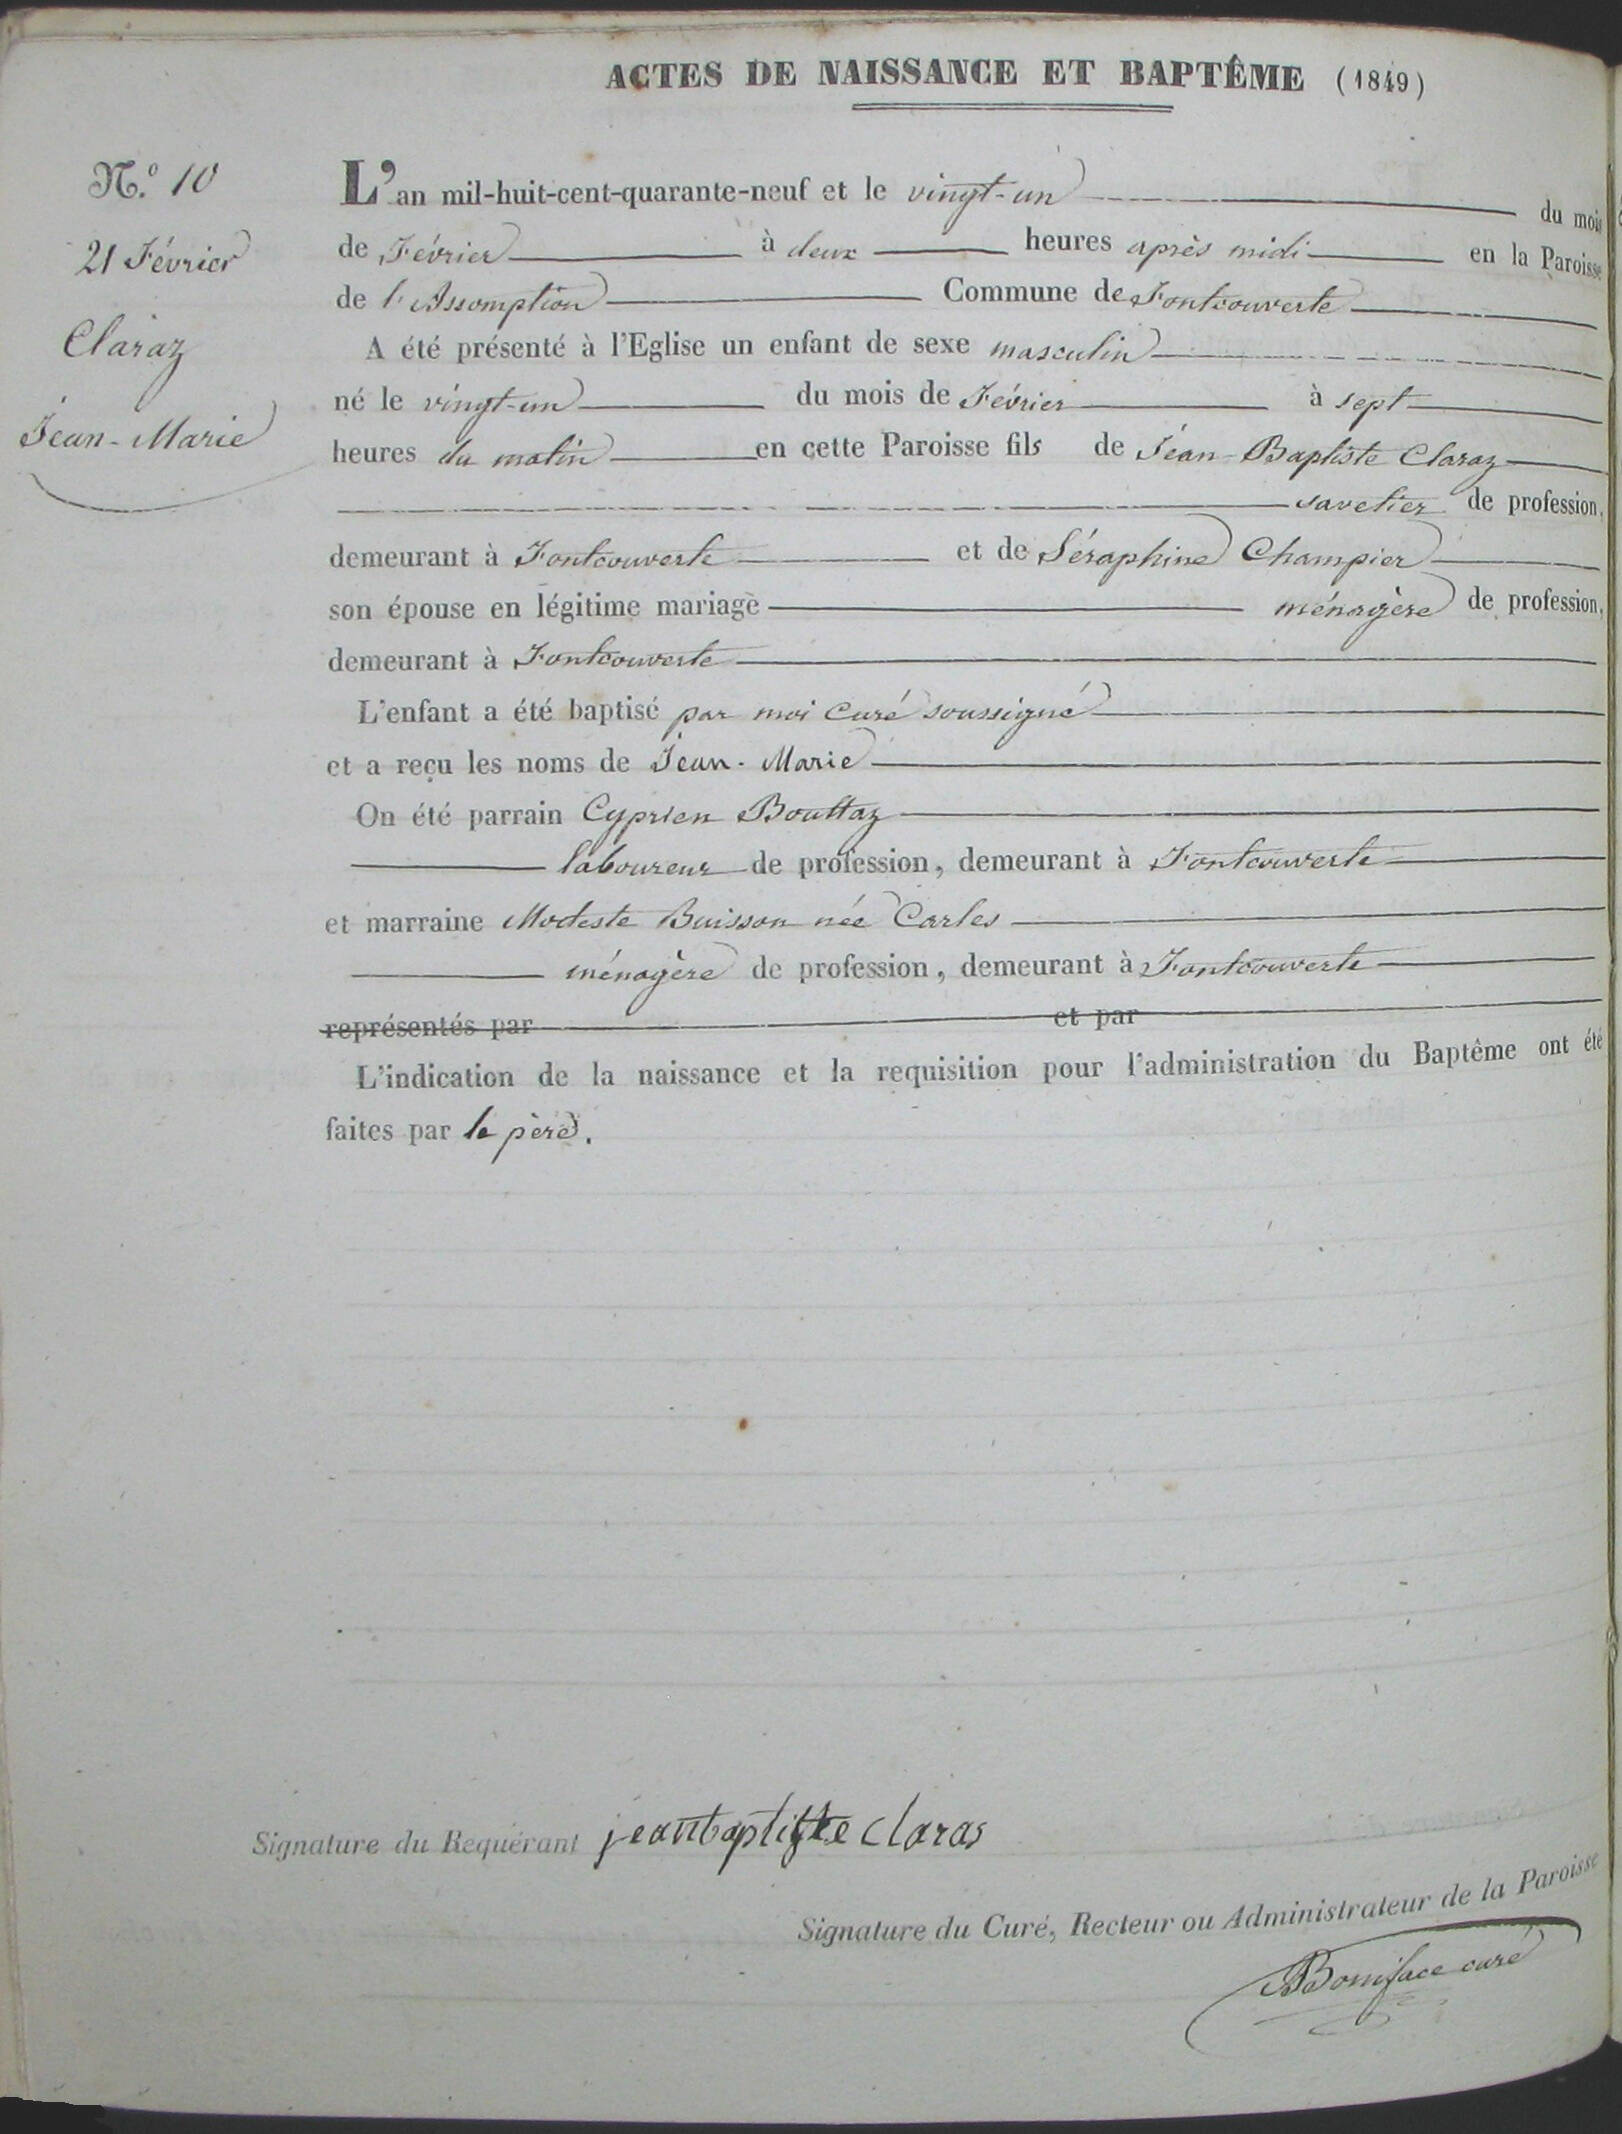 ACTES DE NAISSANCE ET BAPTÊME (1849)
N.º 10
21 Février
Claraz
Jean-Marie
L'an mil-huit-cent-quarante-neuf et le vingt-un du mois
de Février à deux heures après midi en la Paroisse
de l'Assomption Commune de Fontcouverte
A été présenté à l'Eglise un enfant de sexe masculin
né le vingt-un du mois de Février à sept
heures du matin en cette Paroisse fils de Jean-Baptiste Claraz
savetier de profession,
demeurant à Fontcouverte et de Séraphine Champier
son épouse en légitime mariage ménagère de profession,
demeurant à Fontcouverte
L'enfant a été baptisé par moi Curé soussigné
et a reçu les noms de Jean-Marie
On été parrain Cyprien Bouttaz
laboureur de profession, demeurant à Fontcouverte
et marraine Modeste Buisson née Carles
ménagère de profession, demeurant à Fontcouverte
représentés par et par
L'indication de la naissance et la requisition pour l'administration du Baptême ont été
faites par le père.
Signature du Requérant jeanbaptiste claras
Signature du Curé, Recteur ou Administrateur de la Paroisse
Boniface curé